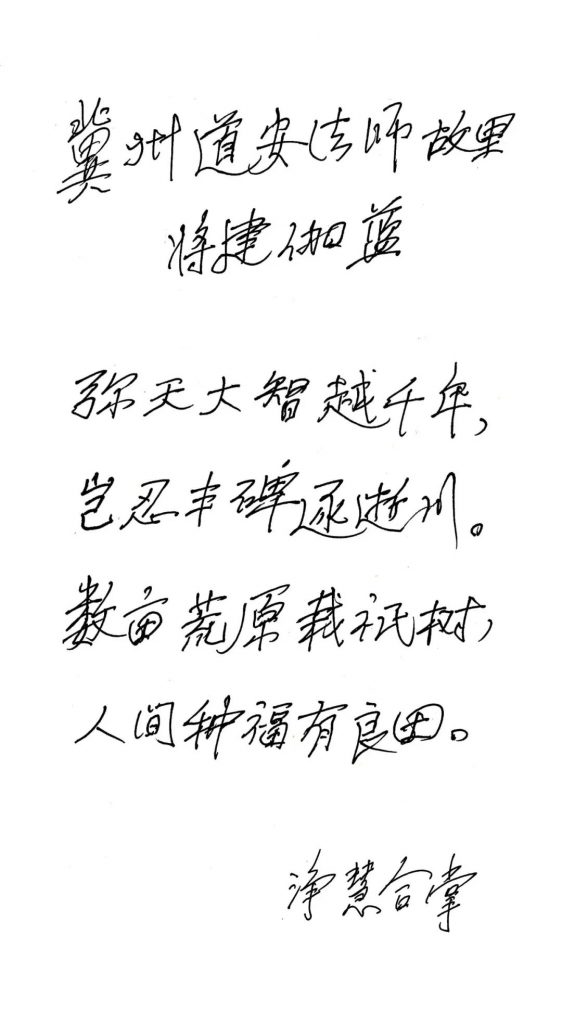 冀州道安法师故里
将建伽蓝
弥天大智越千年，
岂忍丰碑逐逝川。
数亩荒原栽祇树，
人间种福有良田。
净慧合掌